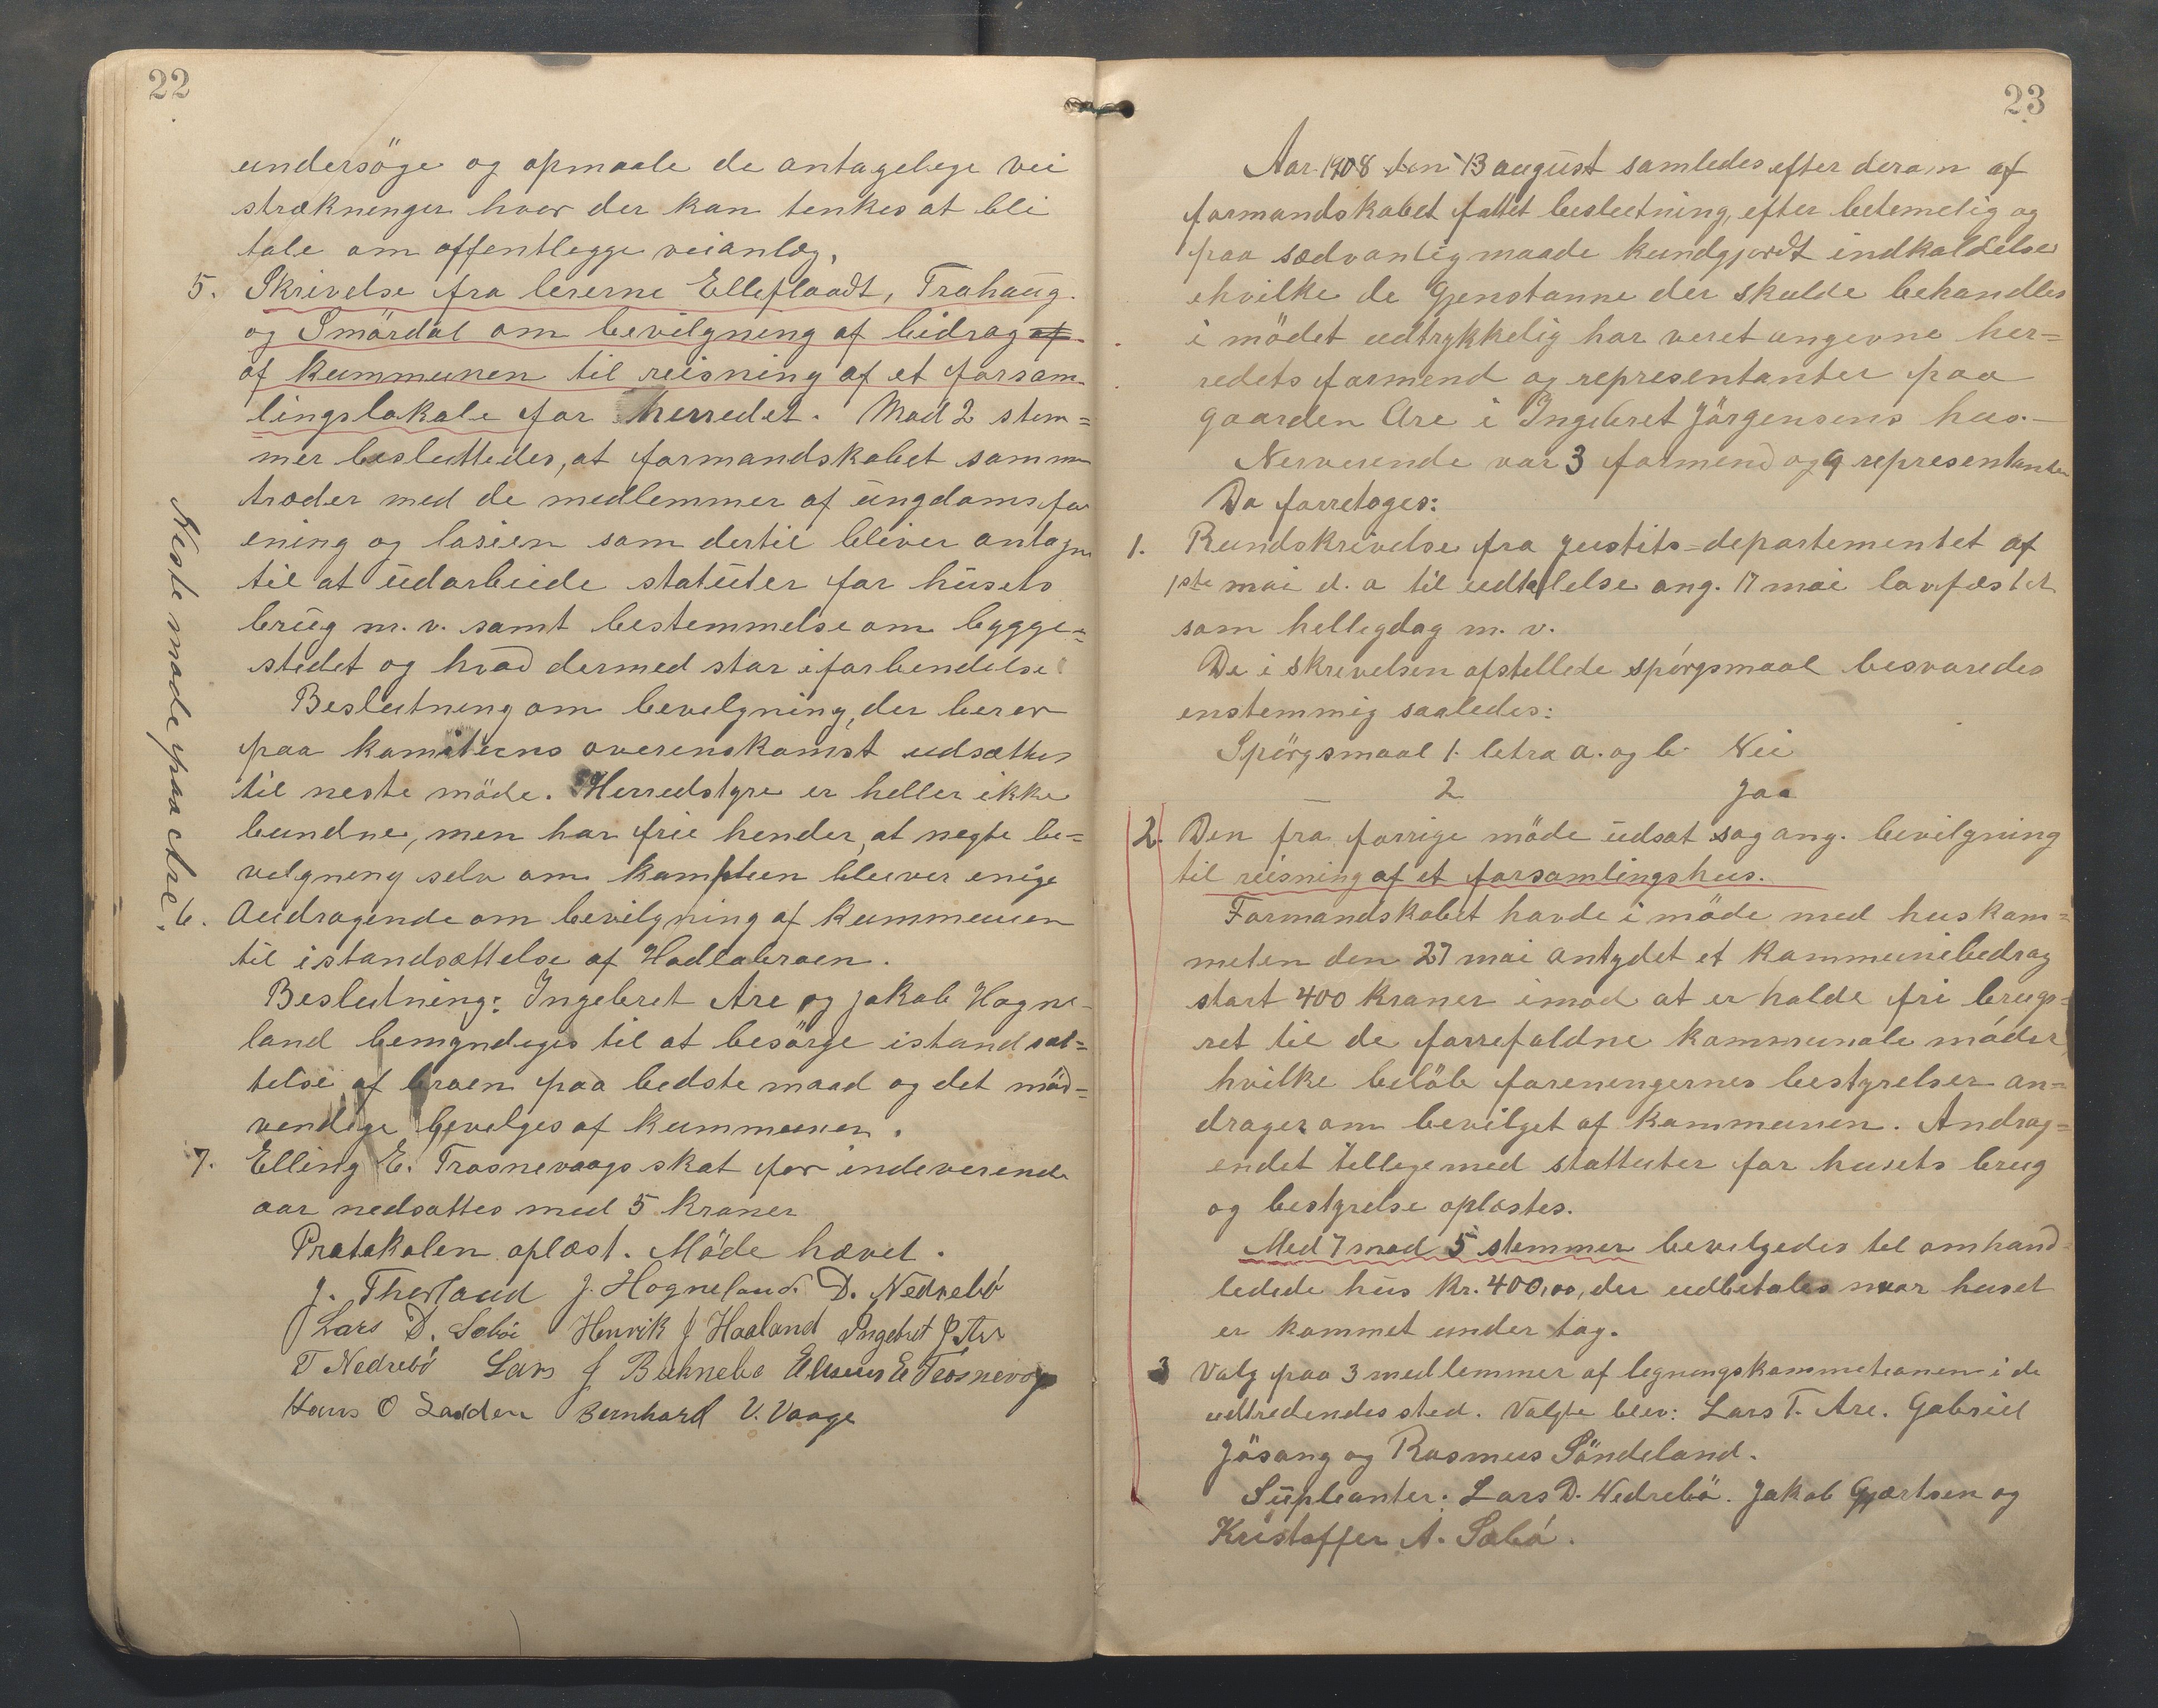 22
undersöge og opmaale de antagelege vei
strækninger hvor der kan tenkes at bli
tale om offentlegge veianlæg,
5. Skrivelse fra lererne Elleflaadt, Trahaug.
og Smördal om bevilgning af bidrag af
af kummunen til reisning af et forsam-
lingslokale for herredet. Mod 2 stem=
mer besluttedes, at formandskabet samme
træder med de medlemmer af ungdomsfor
ening og losien som dertil bliver antagn
til at udarbeide statuter for husets
brug m. v. samt bestemmelse om bygge=
stedet og hvad dermed star i forbendelse
Beslutning om bevelgning, der berer
paa komiteens overenskomst udsættes
til neste möde. Herredstyre er heller ikke
bundne, men har frie hender, at negte be=
velgneng selv om komiteen bleever enige
6. Andragende om bevilgning af kummunen
til istandsættelse af Hodlabroen.
Beslutning: Ingebret Are og Jakob Hogne-
land bemyndeges til at besörge istandsæt=
telse af broen paa bedste maad og det nöd=
vendige bevelges af kummunen.
7. Elling E. Trosnevaags skat for indeverende
aar nedsattes med 5 kroner
Protokolen oplæst. Möde hævet.
J. Thorland J. Hogneland. D. Nedrebö
Lars D. Sæbö Henrik J Haaland Ingebret J. Are
T Nedrebö Lars J Bukneba E Trosnevag
Hans O Ladden Bernhard V. Vaage
Neste möde paa Are.
23
Aar 1908 den 13 august samledes efter derom af
formandskabet fattet beslutning, efter betemelig og
paa sædvanlig maade kundgjordt indkaldelse
ehvilke de Gjenstanne der skulde behandles
i mödet udtrykkelig har veret angevne her=
redets formend og representanter paa
gaarden Are i Ingebret Jörgensens hus.-
Nerverende var 3 formend og 9 representanter
Da forretoges:
1. Rundskrivelse fra justits-departementet af
1ste mai d. a til udtalelse ang. 17 mai lovfæstet
som hellegdag m. v.
De i skrevelsen opstellede spörgsmaal besvaredes
enstemmig saaledes:
Spörgsmaal 1. letra a. og b. Nei
2 Jaa
2. Den fra forrige möde udsat sag ang. bevilgning
til reisning af et forsamlingshus.
Formandskabet havde i möde med huskom=
meten den 27 mai antydet et kommunebedrag
stort 400 kroner imod at er holde fri brugs=
ret til de forrefaldne kommunale möder
hvilke belöb forenengernes bestyrelser an=
drager om bevilget af kommunen. Andrag=
endet tellegemed stattuter for husets brug
og bestyrelse oplæstes.
Med 7 mod 5 stemmer bevelgedes tel omhand=
ledede hus Kr. 400,00, der udbetales naar huset
er kommet under tag.
3 Valg paa 3 medlemmer af legningskommeteonen i de
udtredendes sted. Valgte blev: Lars T. Are. Gabriel
Jösang og Rasmus Söndeland.
Supleanter: Lars D. Nedrebö. Jakob Gjærtsen og
Kristoffer A. Sæbö.